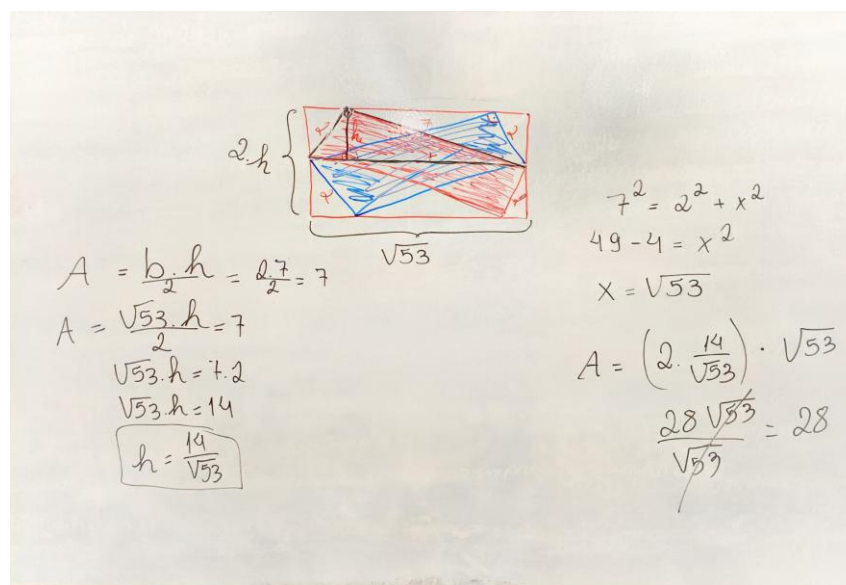 2.h
2
h
7
2
2
x
2
√53
A = b.h/2 = 2.7/2 = 7
A = √53.h/2 = 7
√53.h = 7.2
√53.h = 14
h = 14/√53
7² = 2² + x²
49 - 4 = x²
x = √53
A = (2. 14/√53) . √53
28√53/√53 = 28